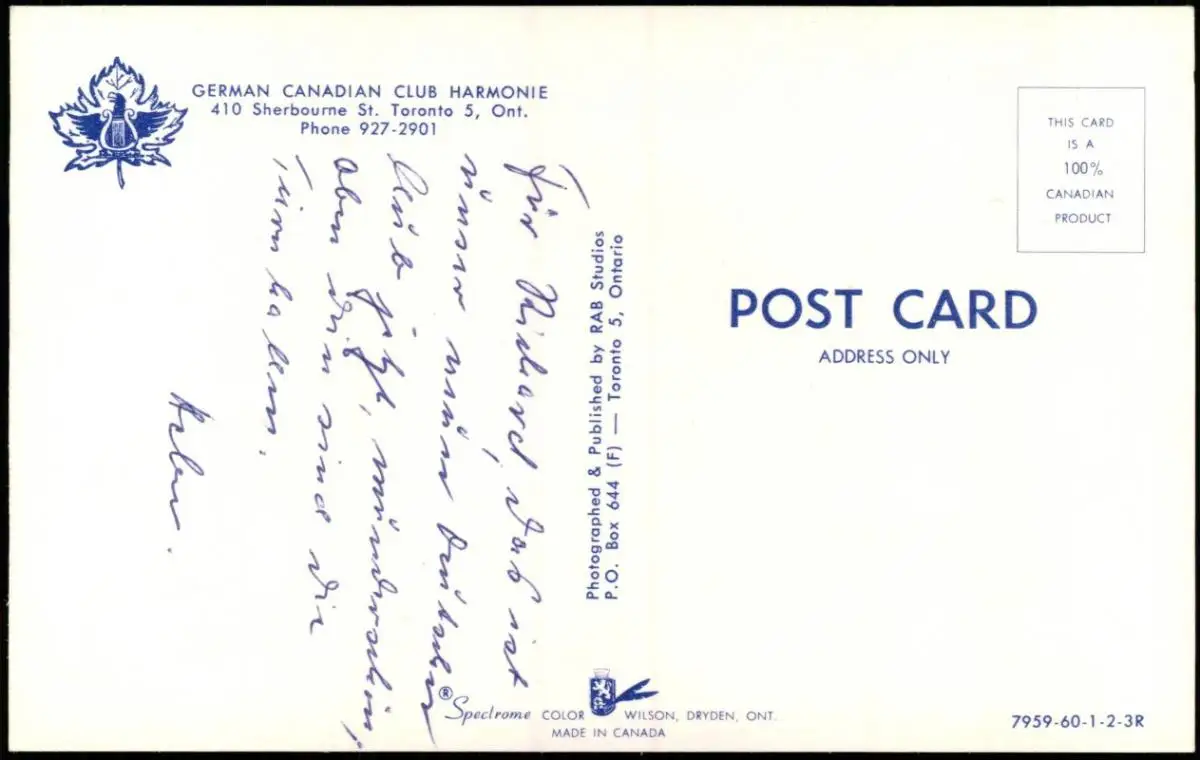 GERMAN CANADIAN CLUB HARMONIE
410 Sherbourne St. Toronto 5, Ont.
Phone 927-2901
Für Richard, Daß ist
unser neuer Deutscher
Club jetzt, wunderschön,
oben drin sind die
Turnhallen.
Photographed & Published by RAB Studios
P.O. Box 644 (F) — Toronto 5, Ontario
THIS CARD
IS A
100%
CANADIAN
PRODUCT
POST CARD
ADDRESS ONLY
® Spectrome COLOR WILSON, DRYDEN, ONT.
MADE IN CANADA
7959-60-1-2-3R